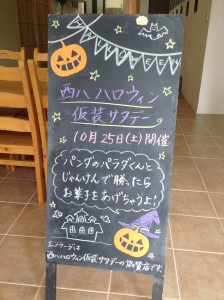 HALLOWEEN
西八ハロウィン
仮装サタデー
10月25日(土)開催
パンダのパラダくんと
じゃんけんで勝ったら
お菓子をあげちゃうよ!
エンラージは
西八ハロウィン仮装サタデーの協賛店です。